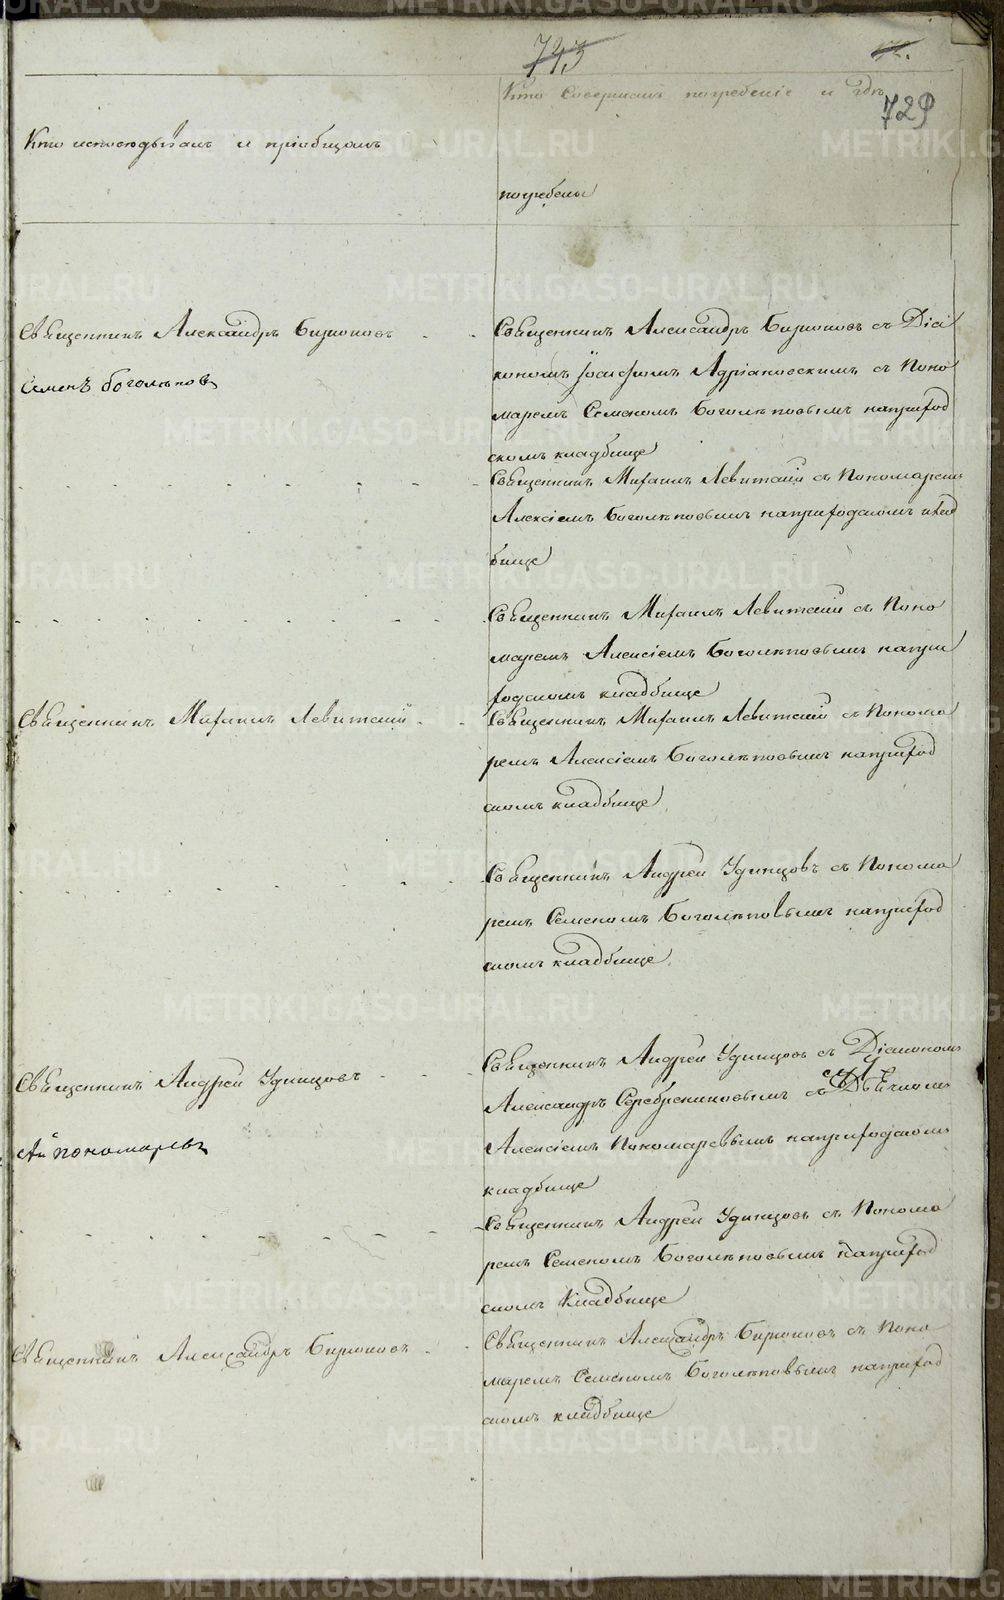 743
729
Кто исповедывалъ и приобщалъ
Кто совершалъ погребенiе и гдѣ
погребены
Священникъ Александръ Бирюковъ
Семенъ Боголѣповъ
Священникъ Александръ Бирюковъ съ Дiа
кономъ Iосифомъ Адрiановскимъ съ Поно
маремъ Семеномъ Боголѣповымъ наприход
скомъ кладбище
Священникъ Михаилъ Левитскiй съ Пономаремъ
Алексiемъ Боголѣповымъ наприходскомъ клад
бище
Священникъ Михаилъ Левитскiй съ Поно
маремъ Алексiемъ Боголѣповымъ напри
ходскомъ кладбище
Священникъ Михаилъ Левитскiй
Священникъ Михаилъ Левитскiй съ Понома
ремъ Алексiемъ Боголѣповымъ наприход
скомъ кладбище
Священникъ Андрей Удинцовъ съ Понома
ремъ Семеномъ Боголѣповымъ наприход
скомъ кладбище
Священникъ Андрей Удинцовъ
Ал пономаревъ
Священникъ Андрей Удинцовъ съ Дiакономъ
Александръ Серебрениковымъ съ
Алексiемъ Пономаревымъ наприходскомъ
кладбище
Священникъ Андрей Удинцовъ съ Понома
ремъ Семеномъ Боголѣповымъ наприход
скомъ Кладбище
Священникъ Александръ Бирюковъ
Священникъ Александръ Бирюковъ съ Поно
маремъ Семеномъ Боголѣповымъ наприход
скомъ кладбище
METRIKI.GASO-URAL.RU